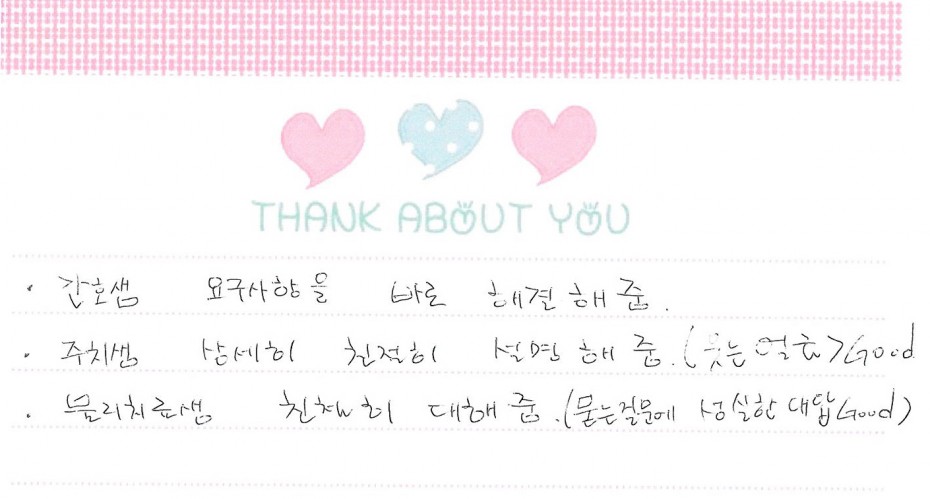 THANK ABOUT YOU
· 간호샘 요구사항을 바로 해결해줌.
· 주치샘 상세히 친절히 설명해줌.(웃는얼굴)Good
· 물리치료샘 친절히 대해줌.(묻는질문에 성실한 대답Good)